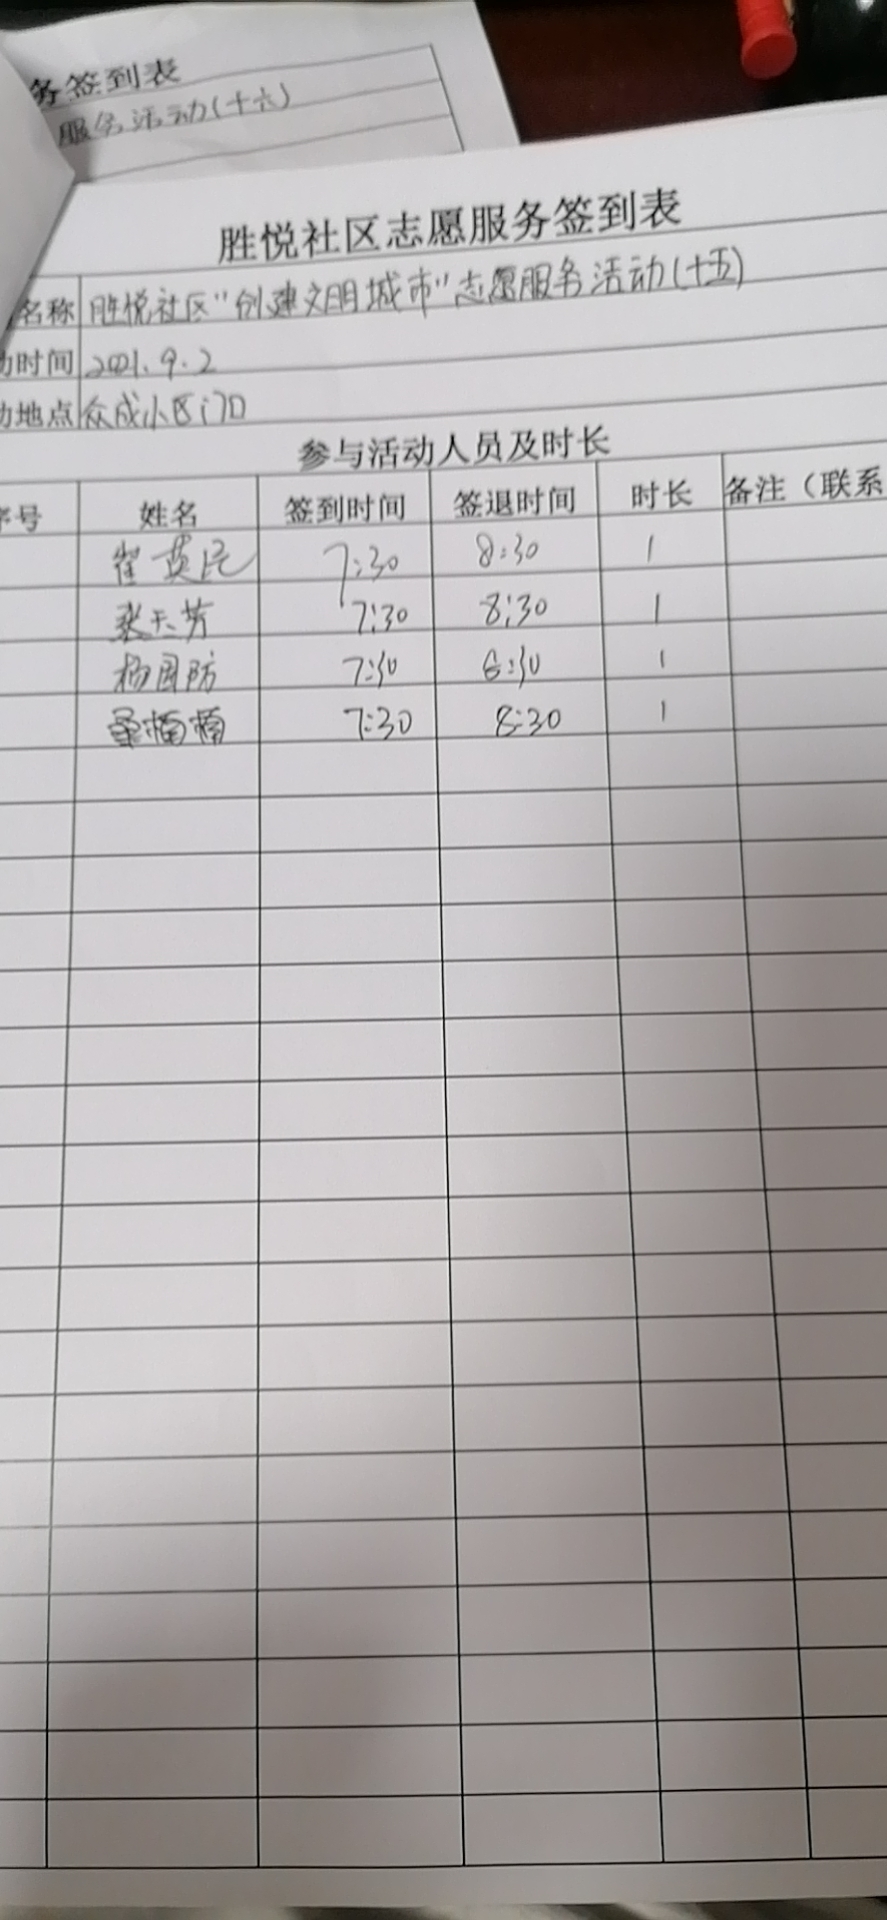 务签到表
服务活动(十六)
胜悦社区志愿服务签到表
名称 胜悦社区"创建文明城市"志愿服务活动(十五)
动时间 2021.9.2
动地点 众成小区门口
参与活动人员及时长
序号 姓名 签到时间 签退时间 时长 备注（联系
翟英民 7:30 8:30 1
张天芳 7:30 8:30 1
杨国防 7:30 8:30 1
7:30 8:30 1